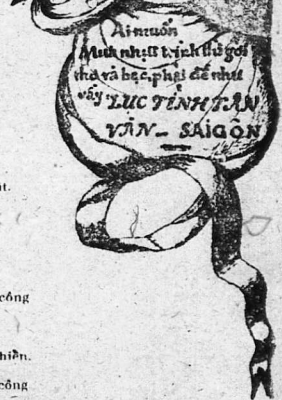 Ai muốn
Mua nhựt trình thơ gởi
thơ và bạc, phải đề như
vầy LỤC TỈNH TÂN
VĂN _ SAIGON
t.
công
hiền.
công